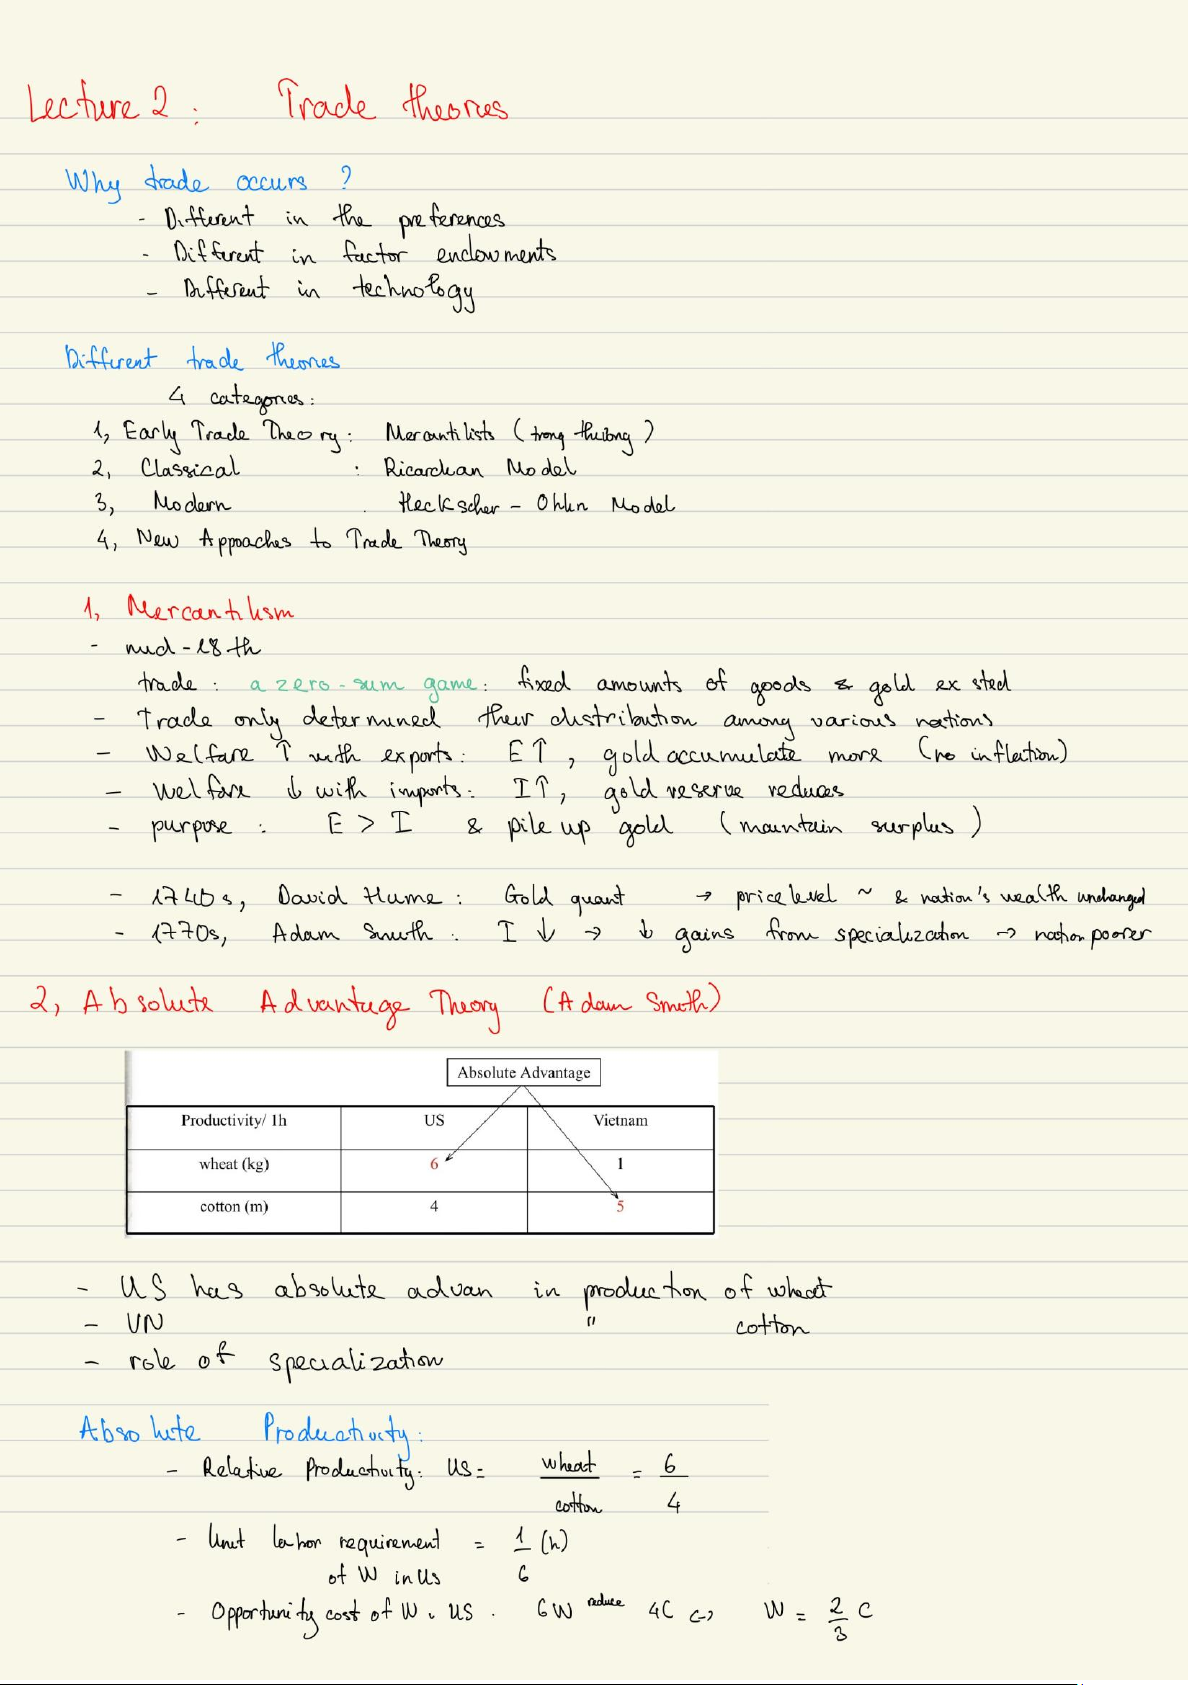 Lecture 2 : Trade theories
Why trade occurs ?
- Different in the preferences
- Different in factor endowments
- Different in technology
Different trade theories
4 categories :
1, Early Trade Theory : Mercantilists ( trọng thương )
2, Classical : Ricardian Model
3, Modern . Heckscher - Ohlin Model
4, New Appoaches to Trade Theory
1, Mercantilism
- mid - 18 th
trade : a zero - sum game : fixed amounts of goods & gold existed
- Trade only determined their distribution among various nations
- Welfare ↑ with exports : E↑ , gold accumulate more (no inflection)
- Welfare ↓ with imports : I↑, gold reserve reduces
- purpose : E > I & pile up gold ( maintain surplus )
- 1740s, David Hume : Gold quant → price level ~ & nation's wealth unchanged
- 1770s, Adam Smith : I ↓ → ↓ gains from specialization → nation poorer
2, Absolute Advantage Theory (Adam Smith)
Absolute Advantage
Productivity/ 1h US Vietnam
wheat (kg) 6 1
cotton (m) 4 5
- US has absolute advan in production of wheat
- VN " cotton
- role of specialization
Absolute Productivity :
- Relative Productivity : US = wheat/cotton = 6/4
- Unit labor requirement = 1/6 (h)
of W in US
- Opportunity cost of W US . 6W reduce 4C <-> W = 2/3 C